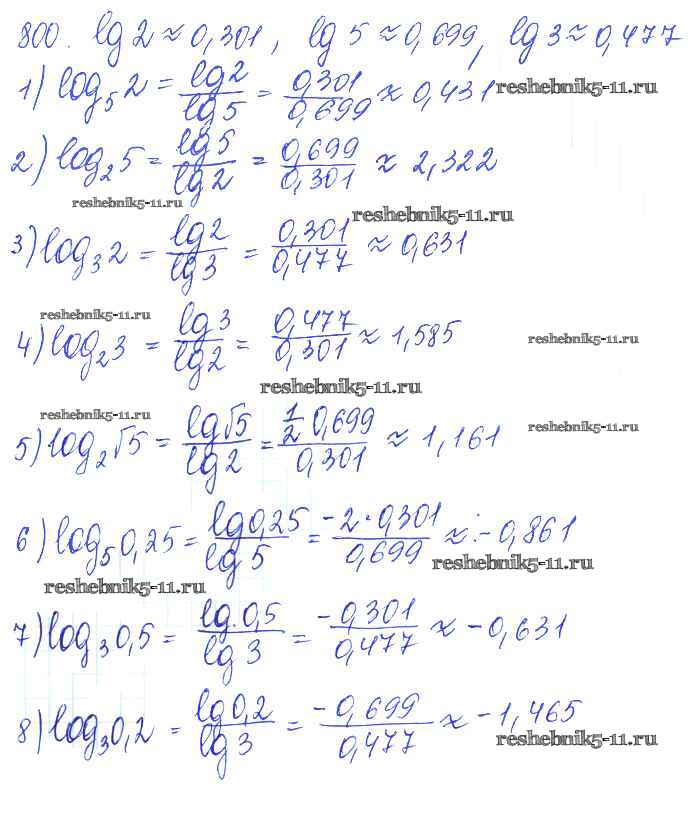 800. lg 2 ≈ 0,301, lg 5 ≈ 0,699, lg 3 ≈ 0,477
1) log₅ 2 = lg 2 / lg 5 = 0,301 / 0,699 ≈ 0,431 reshebnik5-11.ru
2) log₂ 5 = lg 5 / lg 2 = 0,699 / 0,301 ≈ 2,322
reshebnik5-11.ru reshebnik5-11.ru
3) log₃ 2 = lg 2 / lg 3 = 0,301 / 0,477 ≈ 0,631
reshebnik5-11.ru
4) log₂ 3 = lg 3 / lg 2 = 0,477 / 0,301 ≈ 1,585 reshebnik5-11.ru
reshebnik5-11.ru
reshebnik5-11.ru
5) log₂ √5 = lg √5 / lg 2 = 1/2 0,699 / 0,301 ≈ 1,161 reshebnik5-11.ru
6) log₅ 0,25 = lg 0,25 / lg 5 = -2 · 0,301 / 0,699 ≈ -0,861
reshebnik5-11.ru reshebnik5-11.ru
7) log₃ 0,5 = lg 0,5 / lg 3 = -0,301 / 0,477 ≈ -0,631
8) log₃ 0,2 = lg 0,2 / lg 3 = -0,699 / 0,477 ≈ -1,465
reshebnik5-11.ru